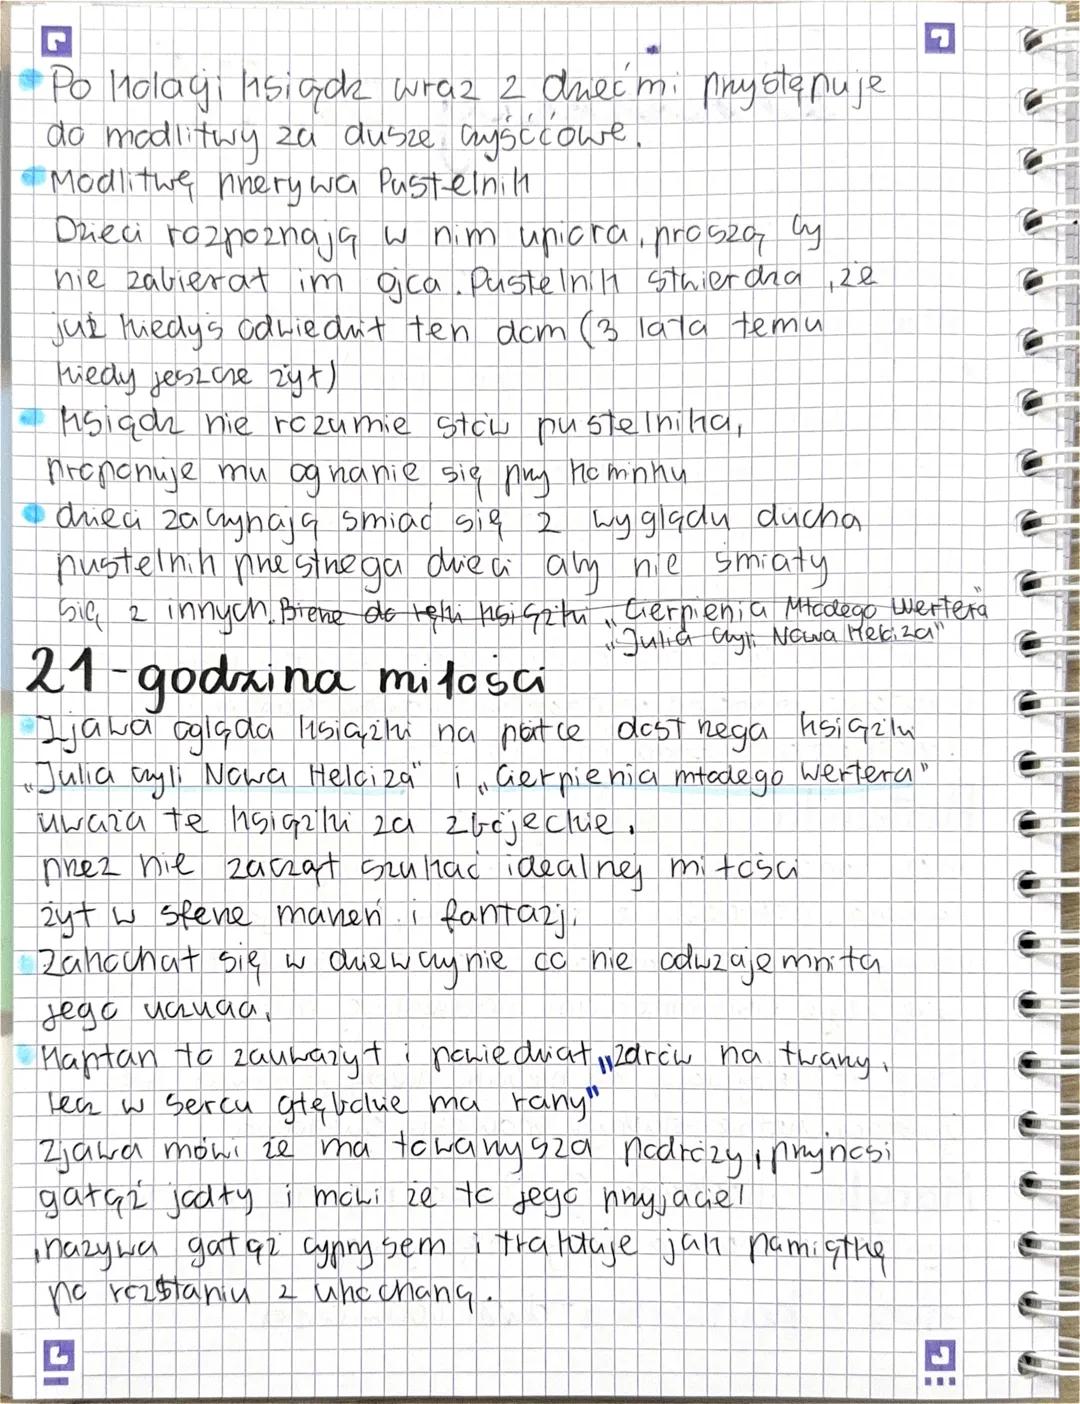 Po kolacji ksiądz wraz z dziećmi przystępuje
do modlitwy za dusze czyśćcowe.
Modlitwę przerywa Pustelnik
Dzieci rozpoznają w nim upiora, proszą by
nie zabierał im ojca. Pustelnik stwierdza, że
już kiedyś odwiedził ten dom (3 lata temu
kiedy jeszcze żył)
ksiądz nie rozumie słów pustelnika,
proponuje mu ogrzanie się przy kominku
dzieci zaczynają śmiać się z wyglądu ducha
pustelnik przestrzega dzieci aby nie śmiały
się z innych. Bierze do ręki książki „Cierpienia Młodego Wertera"
„Julia czyli Nowa Heloiza"
21-godzina miłości
Zjawa ogląda książki na półce dostrzega książki
„Julia czyli Nowa Heloiza" i „Cierpienia młodego Wertera"
uważa te książki za zbójeckie,
przez nie zaczął szukać idealnej miłości
żył w sferze marzeń i fantazji
Zakochał się w dziewczynie co nie odwzajemniła
jego uczucia,
Kapłan to zauważył i powiedział „zdrów na twarzy,
lecz w sercu głębokie ma rany"
Zjawa mówi że ma towarzysza podróży, przynosi
gałąź jodły i mówi że to jego przyjaciel
,nazywa gałąź cyprysem i traktuje jak pamiątkę
po rozstaniu z ukochaną.